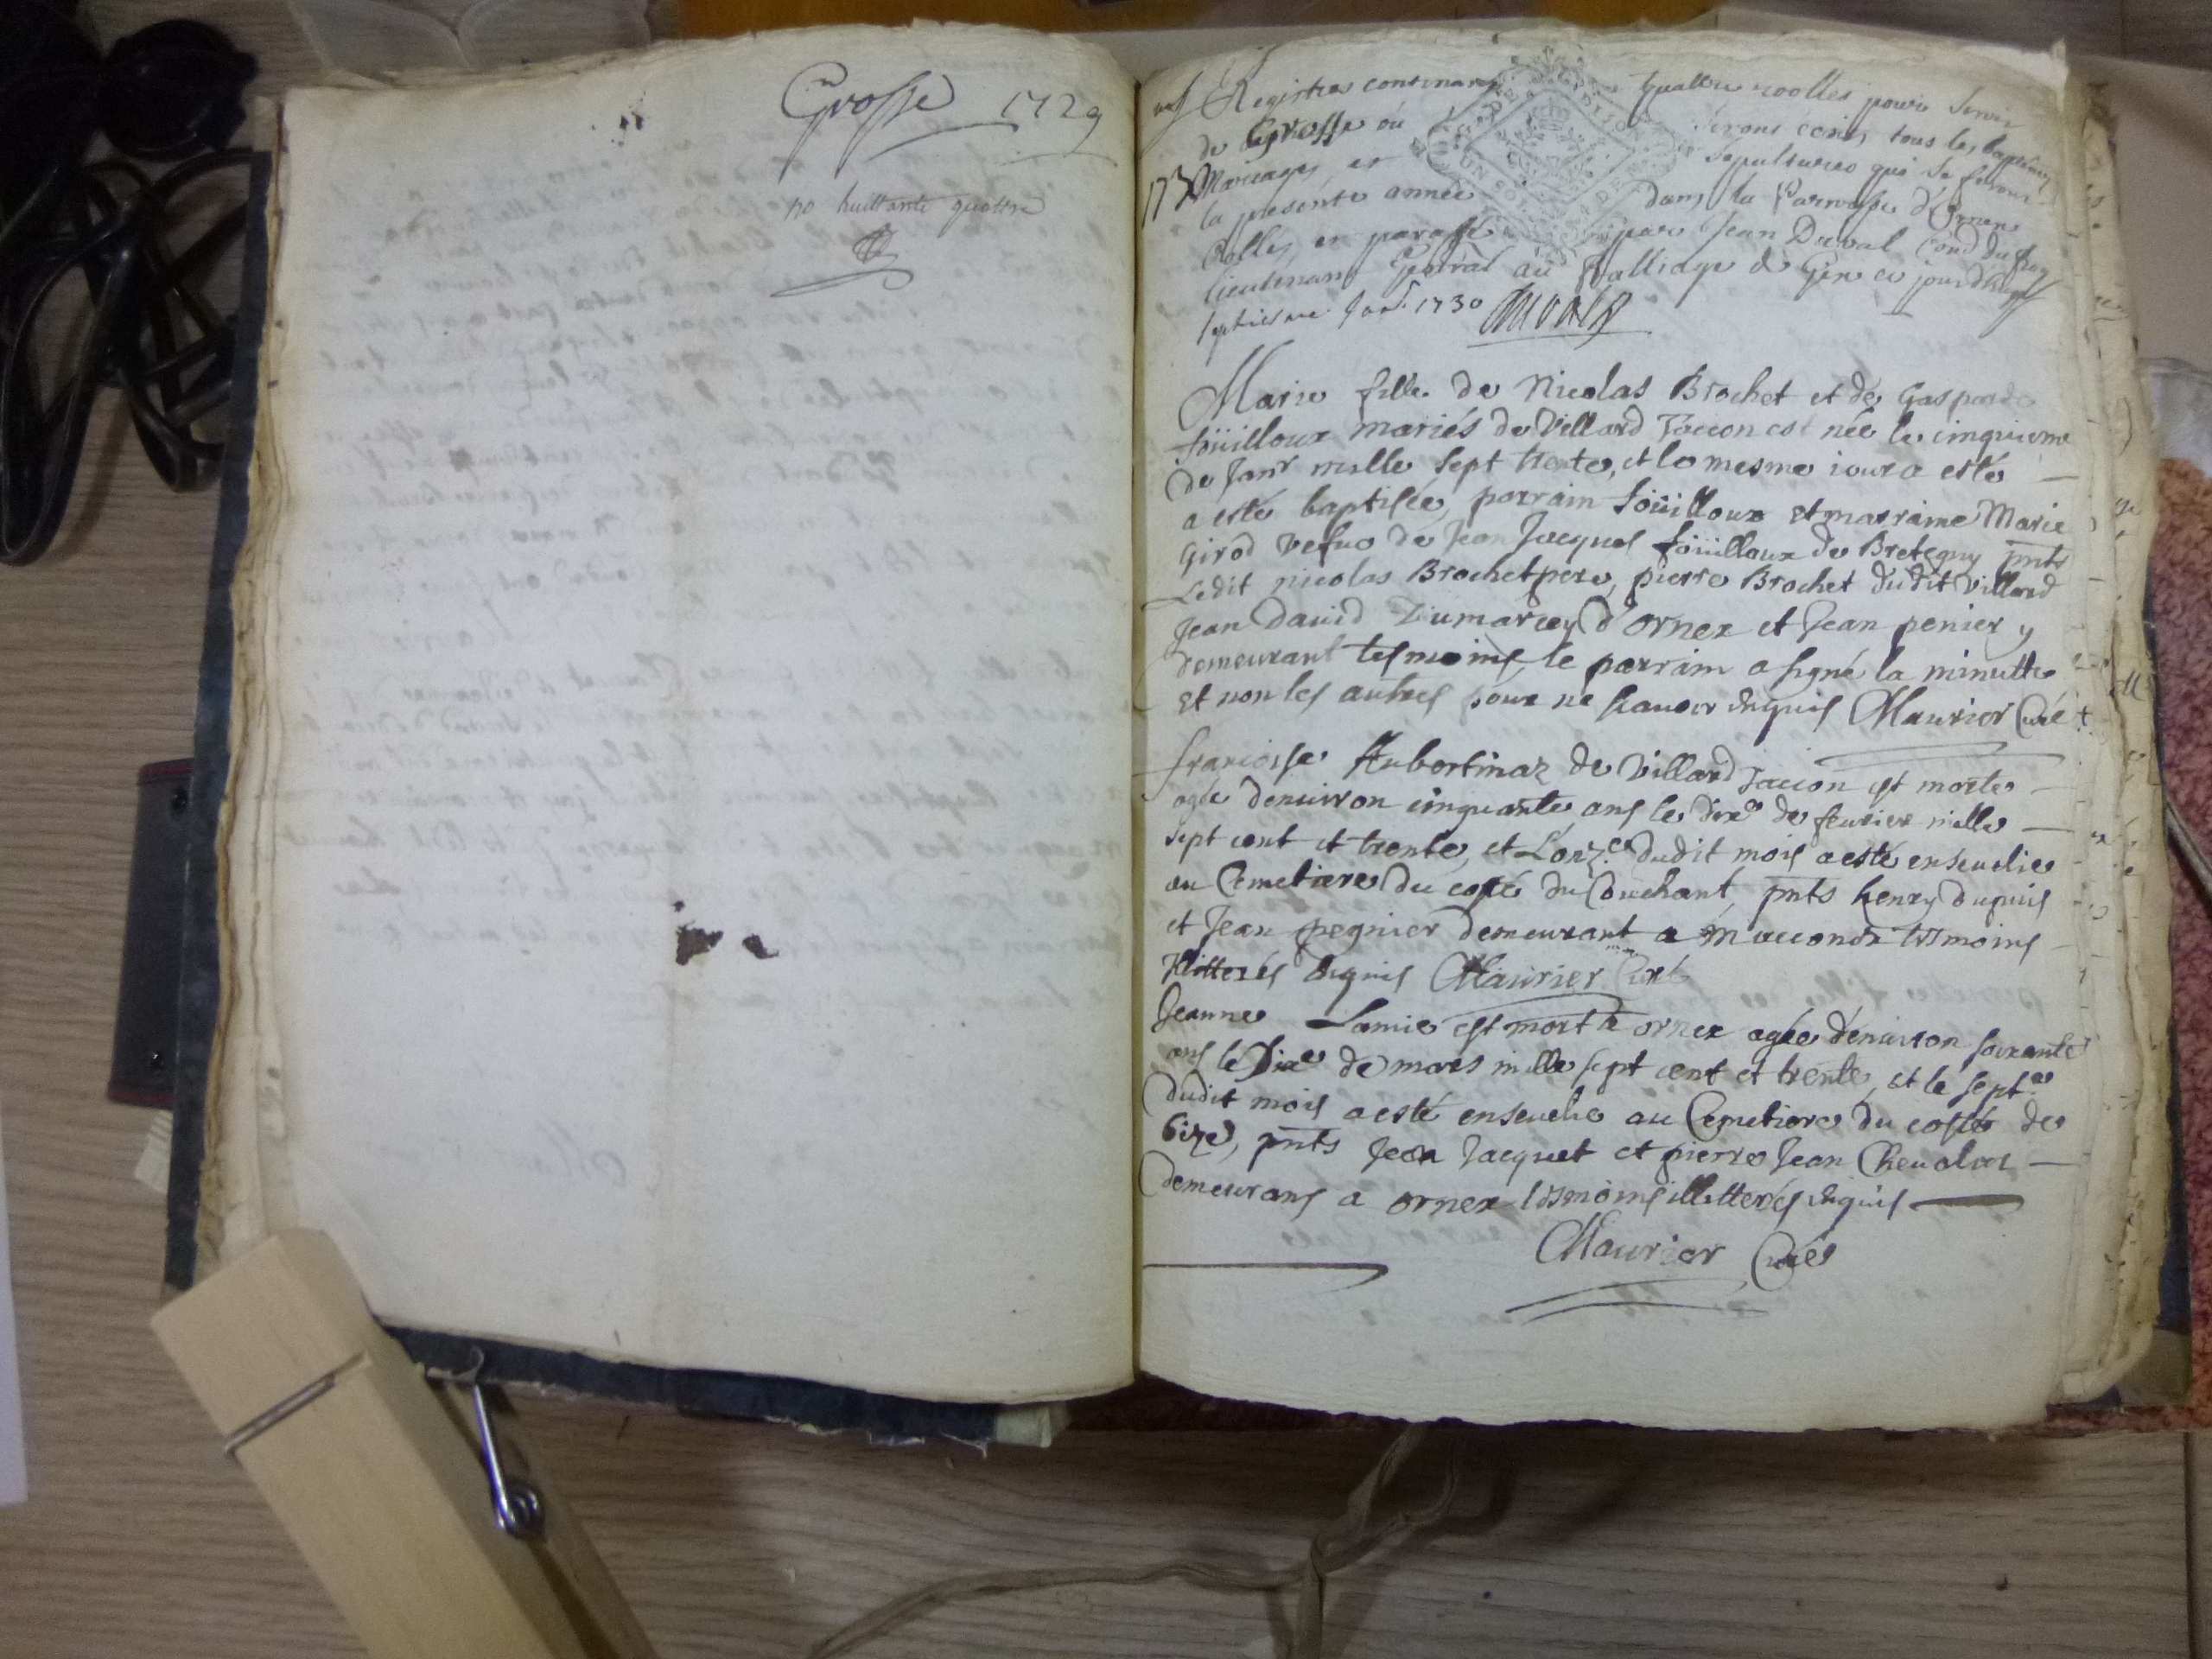 Grosse 1729
no huittante quattre
Registres contenant quattre roolles pour servir
de Grosse où seront ecrits tous les baptemes
1730 Mariages et sepultures qui se feront
la presente année dans la Parroisse d'Ornex
Collés et paraffé par Jean Duval Cons.r du Roy
lieutenant General au Balliage de Gex ce jourdhuy
septiesme Janr. 1730 Duval
Marie fille de Nicolas Brochet et de Gasparde
foüilloux mariés de Villard Taccon est née le cinquieme
de Janr mille sept trente, et le mesme iour a esté
a esté baptisée, parrain foüilloux et marraine Marie
Girod vefue de Jean Jacques foüilloux de Bretegny pnts
Ledit nicolas Brochet pere, pierre Brochet dudit Villard
Jean Dauid Dumarcey d'ornex et Jean penier y
demeurant tesmoins, le parrain a signé la minutte
et non les autres pour ne scauoir enquis Maurier Curé
francoise Aubertinaz de Villard Taccon est morte
agée denuiron cinquante ans le dixe de feurier mille
sept cent et trente, et L'onz.e dudit mois a esté enseuelie
au Cemetiere du costé du Couchant, pnts henry dupuis
et Jean pegnier demeurant a Maconnex tesmoins
illitterés enquis Maurier Curé
Jeanne Lamie est morte a ornex agée denuiron soixante
ans le Sixe de mars mille sept cent et trente, et le sept.e
dudit mois a esté enseuelie au Cemetiere du costé de
bize, pnts Jean Jacquet et pierre Jean Cheualier
demeurans a ornex tesmoins illitterés enquis
Maurier Curé